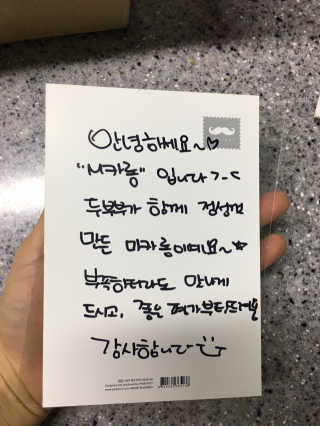 안녕하세요~♡
"M카롱" 입니다 >-<
두부부가 함께 정성껏
만든 마카롱이예요~☆
부족하더라도 맛있게
드시고, 좋은 평가부탁드려요
감사합니다 :)